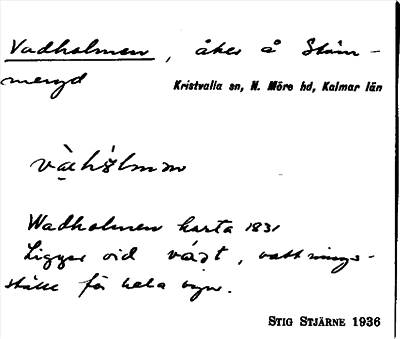 Vadholmen, åker å Stäm-
meryd
Kristvalla sn, N. Möre hd, Kalmar län
Wadholmen karta 1831
Ligger vid , vattnings-
ställe för hela byn.
STIG STJÄRNE 1936